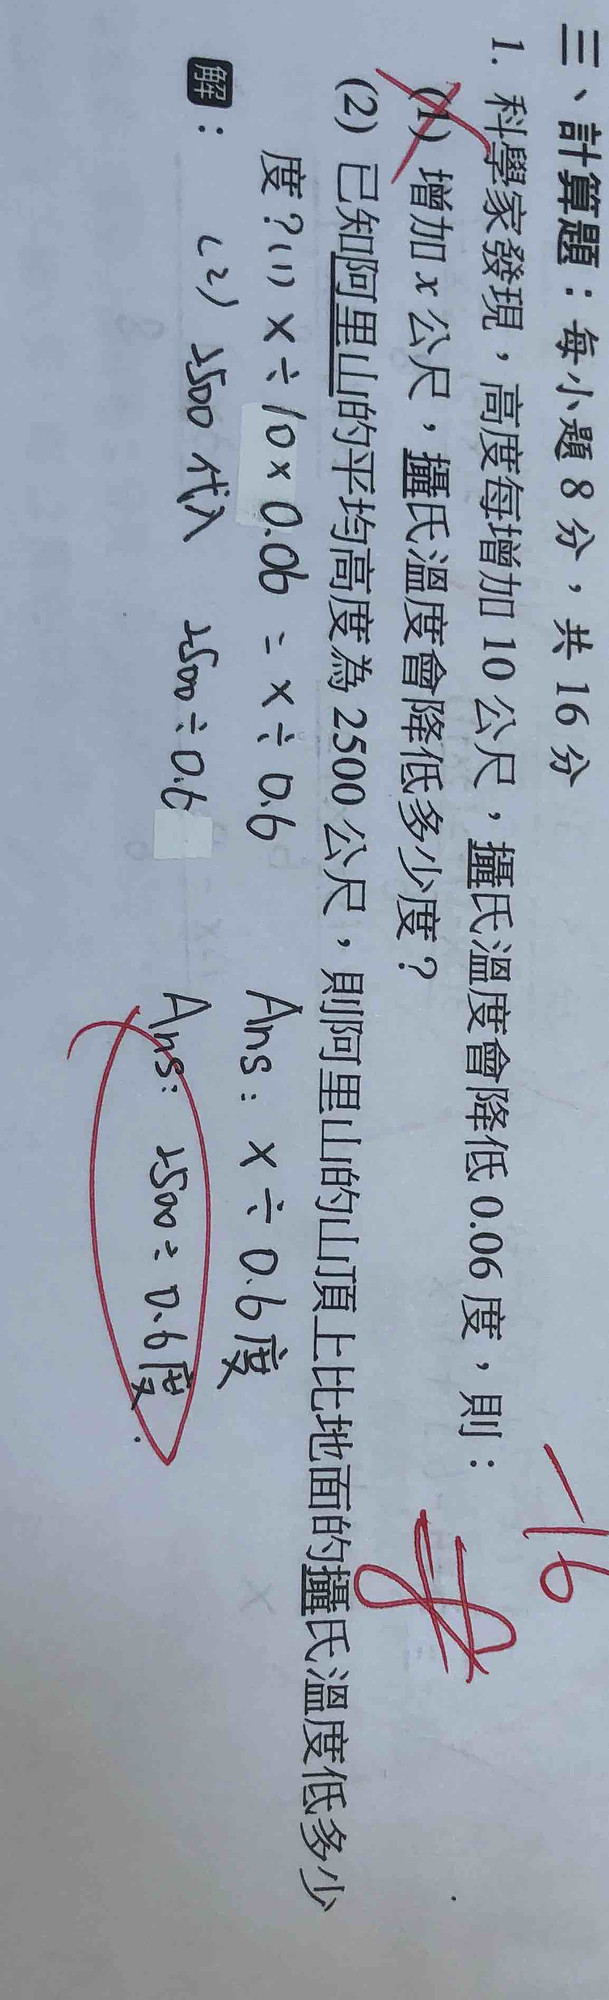 三、計算題：每小題8分，共16分
1. 科學家發現，高度每增加10公尺，攝氏溫度會降低0.06度，則：
(1) 增加x公尺，攝氏溫度會降低多少度？
(2) 已知阿里山的平均高度為2500公尺，則阿里山的山頂上比地面的攝氏溫度低多少
度？(1) x÷10×0.06 = x÷0.6 Ans: x÷0.6度
解： (2) 2500代入 2500÷0.6 Ans: 2500÷0.6度.
-16